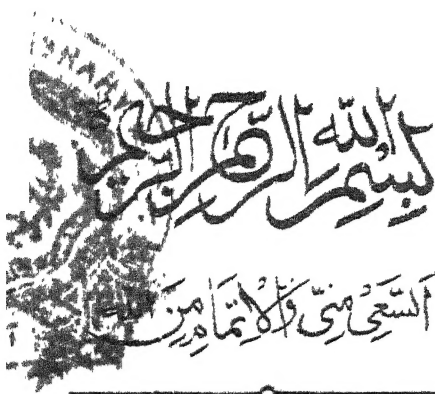 بِسْمِ اللّٰهِ الرَّحْمٰنِ الرَّحِيْمِ
اَلسَّعْىُ مِنِّىْ وَالْاِتْمَامُ مِنَ اللّٰهِ